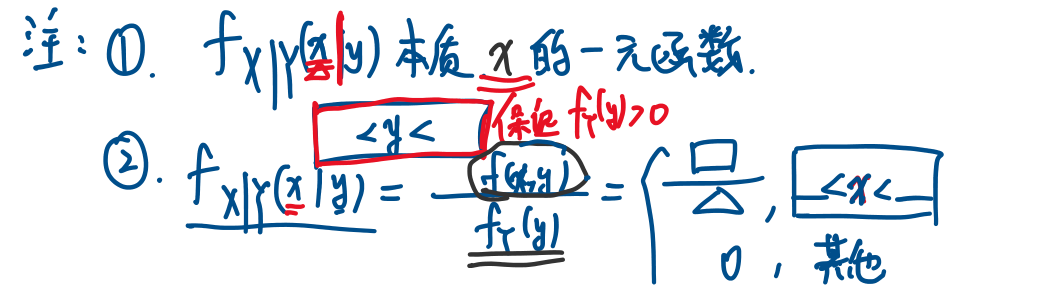 注：①. f_{X|Y}(x|y) 本质 x 的一元函数.
<y< 保证 f_Y(y)>0
②. f_{X|Y}(x|y) = f(x,y) / f_Y(y) = { □/△, _<x<_
0, 其他